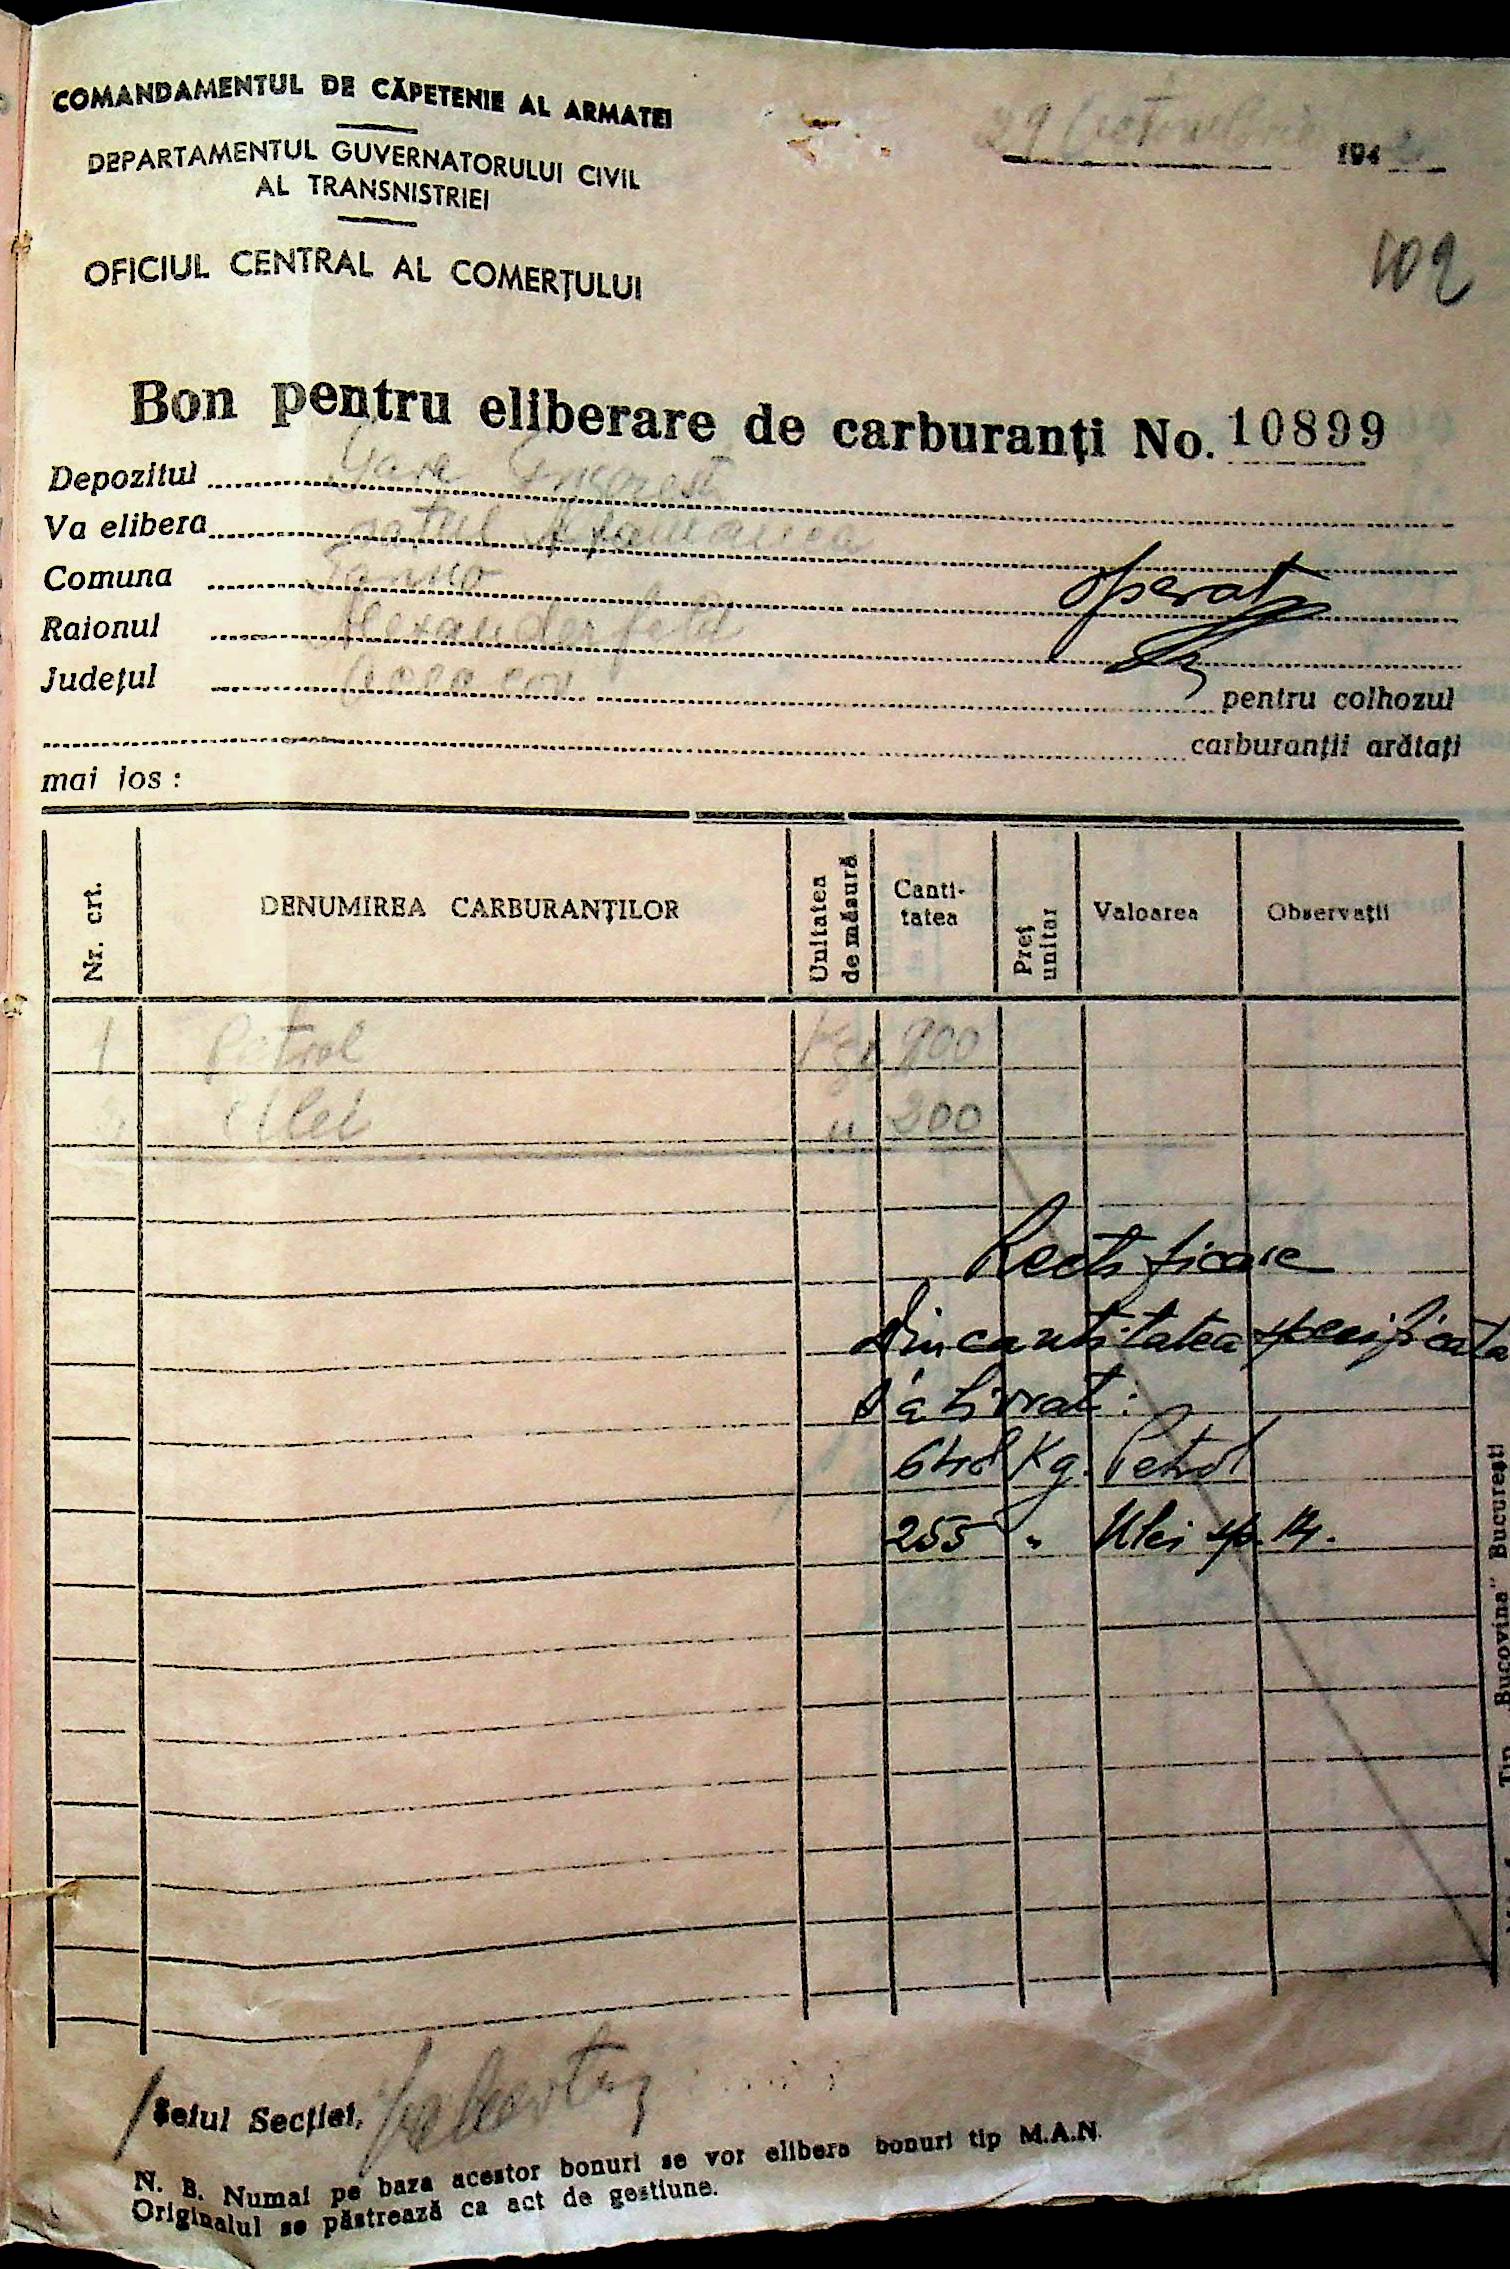 COMANDAMENTUL DE CĂPETENIE AL ARMATEI
DEPARTAMENTUL GUVERNATORULUI CIVIL
AL TRANSNISTRIEI
OFICIUL CENTRAL AL COMERȚULUI
29 Octombrie 1942
102
Bon pentru eliberare de carburanți No. 10899
Depozitul Gara
Va elibera satul
Comuna
operat
Raionul Alexanderfeld
Județul pentru colhozul
carburanții arătați
mai jos :
Nr. crt. DENUMIREA CARBURANȚILOR Unitatea de măsură Canti-tatea Preț unitar Valoarea Observații
1 Petrol Kg. 900
Ulei " 200
Rectificare
Din cantitatea specificata
s'a livrat :
648 Kg. Petrol
255 " Ulei sp. 14.
Șeful Secției,
N. B. Numai pe baza acestor bonuri se vor elibera bonuri tip M.A.N.
Originalul se păstrează ca act de gestiune.
Tip. Bucovina" București